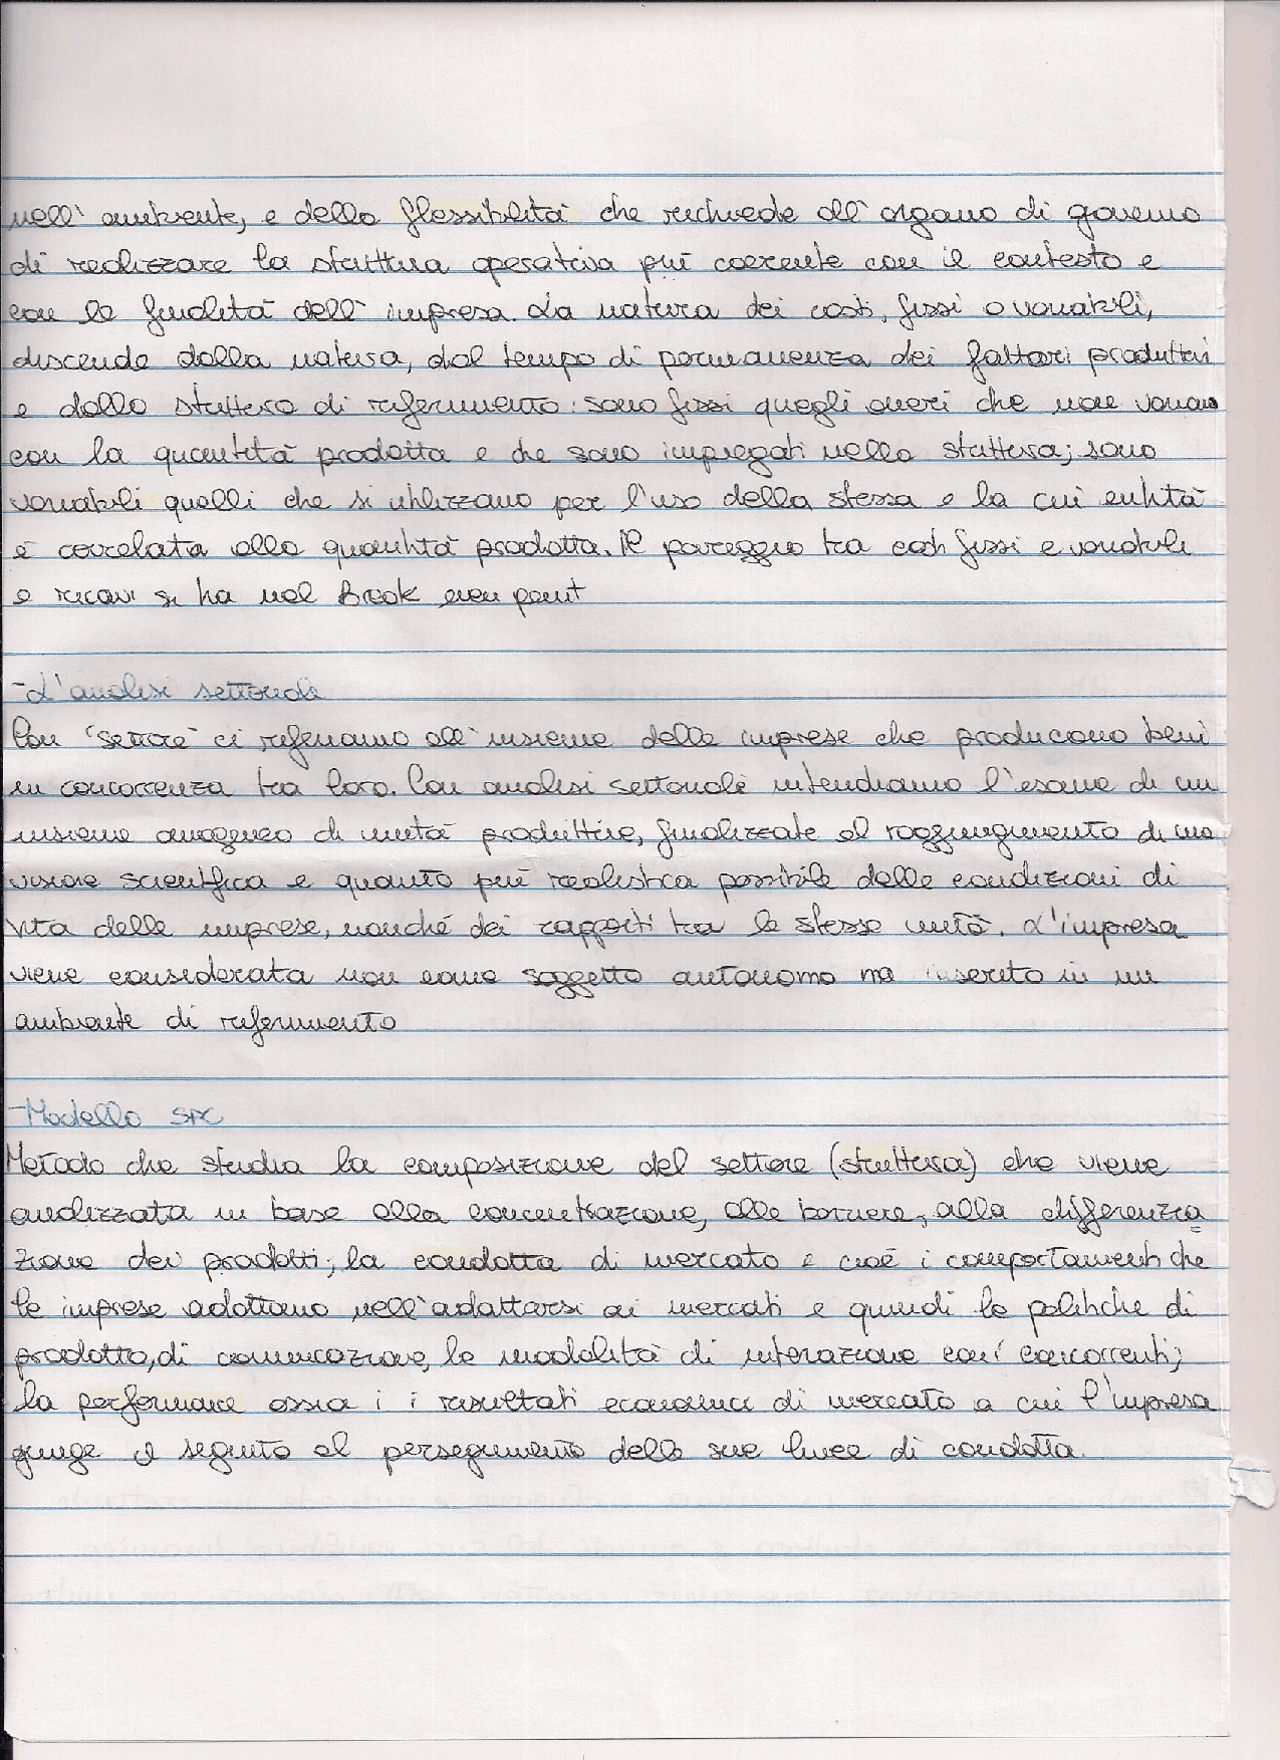 nell'ambiente, e della flessibilità che richiede all'organo di governo
di realizzare la struttura operativa più coerente con il contesto e
con le finalità dell'impresa. La natura dei costi, fissi o variabili,
discende dalla natura, dal tempo di permanenza dei fattori produttivi
e dalla struttura di riferimento: sono fissi quegli oneri che non variano
con la quantità prodotta e che sono impiegati nella struttura; sono
variabili quelli che si utilizzano per l'uso della stessa e la cui entità
è correlata alla quantità prodotta. Il pareggio tra costi fissi e variabili
e ricavi si ha nel Break even point
-L'analisi settoriale
Con "settore" ci riferiamo all'insieme delle imprese che producono beni
in concorrenza tra loro. Con analisi settoriale intendiamo l'esame di un
insieme omogeneo di unità produttive, finalizzate al raggiungimento di una
visione scientifica e quanto più realistica possibile delle condizioni di
vita delle imprese, nonché dei rapporti tra le stesse unità. L'impresa
viene considerata non come soggetto autonomo ma inserito in un
ambiente di riferimento
-Modello SPC
Metodo che studia la composizione del settore (struttura) che viene
analizzata in base alla concentrazione, alle barriere, alla differenzia
zione dei prodotti; la condotta di mercato e cioè i comportamenti che
le imprese adottano nell'adattarsi ai mercati e quindi le politiche di
prodotto, di comunicazione, le modalità di interazione con i concorrenti;
la performance ossia i i risultati economici di mercato a cui l'impresa
giunge il seguito al perseguimento delle sue linee di condotta.